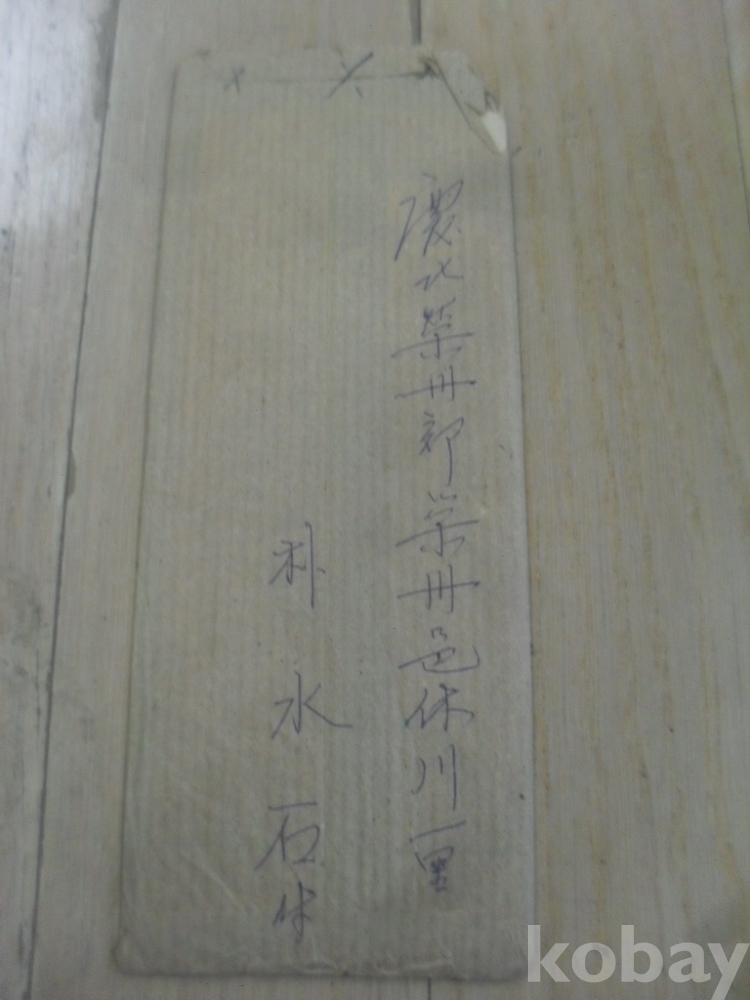 慶北榮州郡榮州邑休川一里
朴永石
kobay